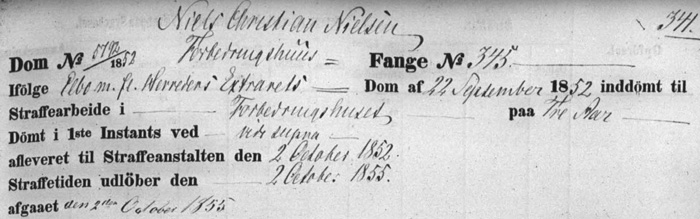 Niels Christian Nielsen, 341.
Dom № 8792/1852 Forbedringshuus = Fange № 345.
Ifölge Elbo m. fl. Herreders Extrarets Dom af 22 September 1852 inddömt til
Straffearbeide i Forbedringshuset paa Tre Aar
Dömt i 1ste Instants ved vide supra
afleveret til Straffeanstalten den 2 October 1852.
Straffetiden udlöber den 2 October 1855.
afgaaet den 2den October 1855